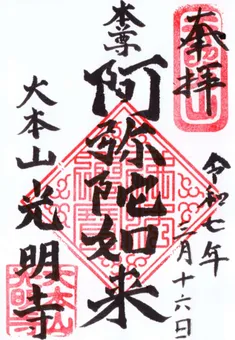 奉拝
令和七年
二月十六日
本尊
阿弥陀如来
大本山光明寺
大本山
光明寺